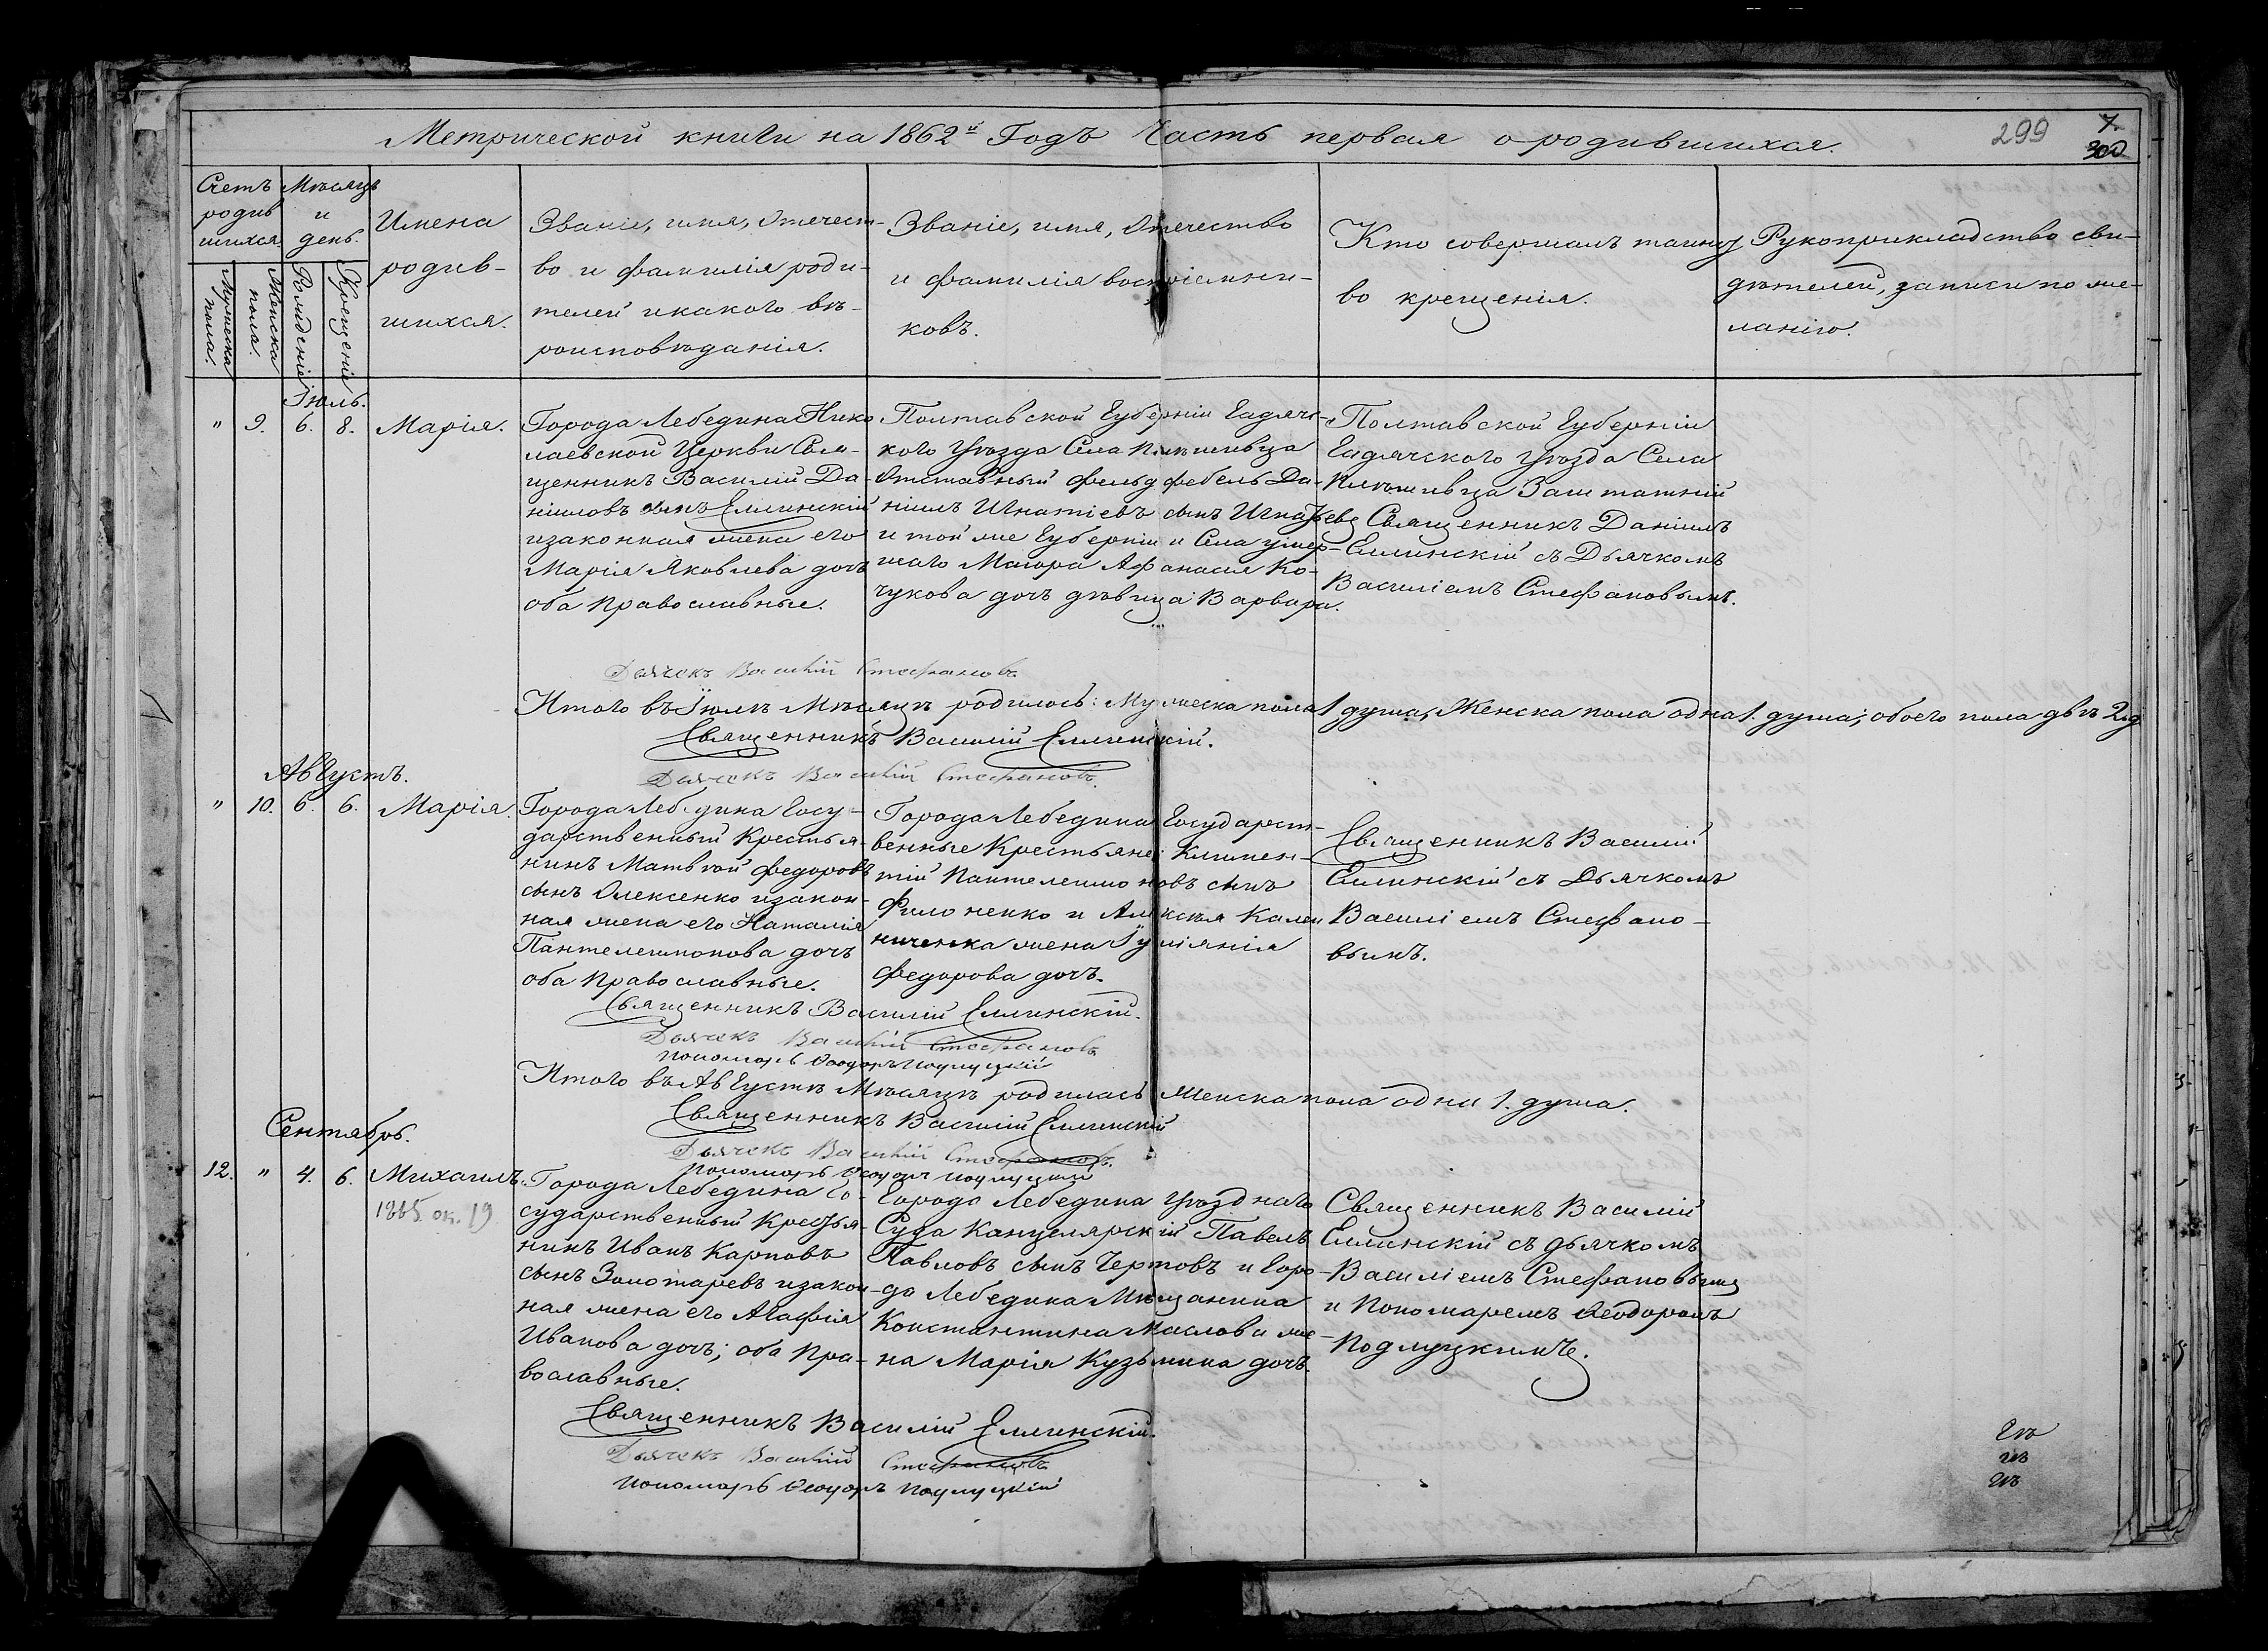 Метрической книги на 1862й Годъ Часть первая о родившихся. 299
7.
300
Счетъ
родив
шихся.
Мужеска
пола.
Женска
пола.
Мѣсяцъ
и
день.
Рожденіе
Крещеніе
Имена
родив-
шихся.
Званіе, имя, Отечест-
во и фамилія роди-
телей и какого вѣ-
роисповѣданія.
Званіе, имя, Отечество
и фамилія воспріемни-
ковъ.
Кто совершалъ таинст
во крещенія.
Рукоприкладство сви-
дѣтелей, записи по же-
ланію.
Іюль.
" 9. 6. 8. Марія.
Города Лебедина Нико
лаевской Церкви Свя-
щенникъ Василій Да-
ніиловъ сынъ Еллинскій
и законная жена его
Марія Яковлева дочь
оба Православные.
Полтавской Губерніи Гадячс-
кого Уѣзда Села
Отставный фельдфебель Да-
ніилъ Игнатіевъ сынъ
и той же Губерніи и Села умер-
шаго Маіора Афанасія Ко-
чукова дочь дѣвица Варвара.
Полтавской Губерніи
Гадячского Уѣзда Села
Заштатній
Священникъ Даніилъ
Еллинскій съ Дьячкомъ
Василіемъ Стефановымъ.
Дьячекъ Василій Стефановъ
Итого въ Іюлѣ Мѣсяцѣ родилось: Мужеска пола 1 душа, Женска пола одна 1. душа; обоего пола двѣ 2. д
Священникъ Василій Еллинскій.
Дьячекъ Василій Стефановъ.
Августъ.
" 10. 6. 6. Марія.
Города Лебедина Госу-
дарственный Крестья-
нинъ Матвѣй Федоровъ
сынъ Олексенко и закон-
ная жена его Наталія
Пантелеимонова дочь
оба Православные.
Города Лебедина Государст-
венные Крестьяне: Климен-
тій Пантелеимоновъ сынъ
Филоненко и Алексѣя Кален
ниченка жена Іуліянія
Федорова дочь.
Священникъ Василій
Еллинскій съ Дьячкомъ
Василіемъ Стефано-
вымъ.
Священникъ Василій Еллинскій.
Дьячекъ Василій Стефановъ
Пономарь Ѳеодоръ Подлуцкій
Итого въ Августѣ Мѣсяцѣ родилась Женска пола одна 1. душа.
Священникъ Василій Еллинскій
Дьячекъ Василій Стефановъ.
Пономарь Ѳеодоръ Подлуцкій
Сентябрь.
12. " 4. 6. Михаилъ.
1885. ок. 19
Города Лебедина Го-
сударственный Крестья-
нинъ Иванъ Карповъ
сынъ Золотаревъ и закон-
ная жена его Агафія
Иванова дочь; оба Пра-
вославные.
Города Лебедина Уѣзднаго
Суда Канцелярскій Павелъ
Павловъ сынъ Чертовъ и Горо-
да Лебедина Мѣщанина
Константина Маслова же-
на Марія Кузьмина дочь.
Священникъ Василій
Еллинскій съ дьячкомъ
Василіемъ Стефановымъ
и Пономаремъ Ѳеодоромъ
Подлуцкимъ.
Священникъ Василій Еллинскій.
Дьячекъ Василій Стефановъ
Пономарь Ѳеодоръ Подлуцкій